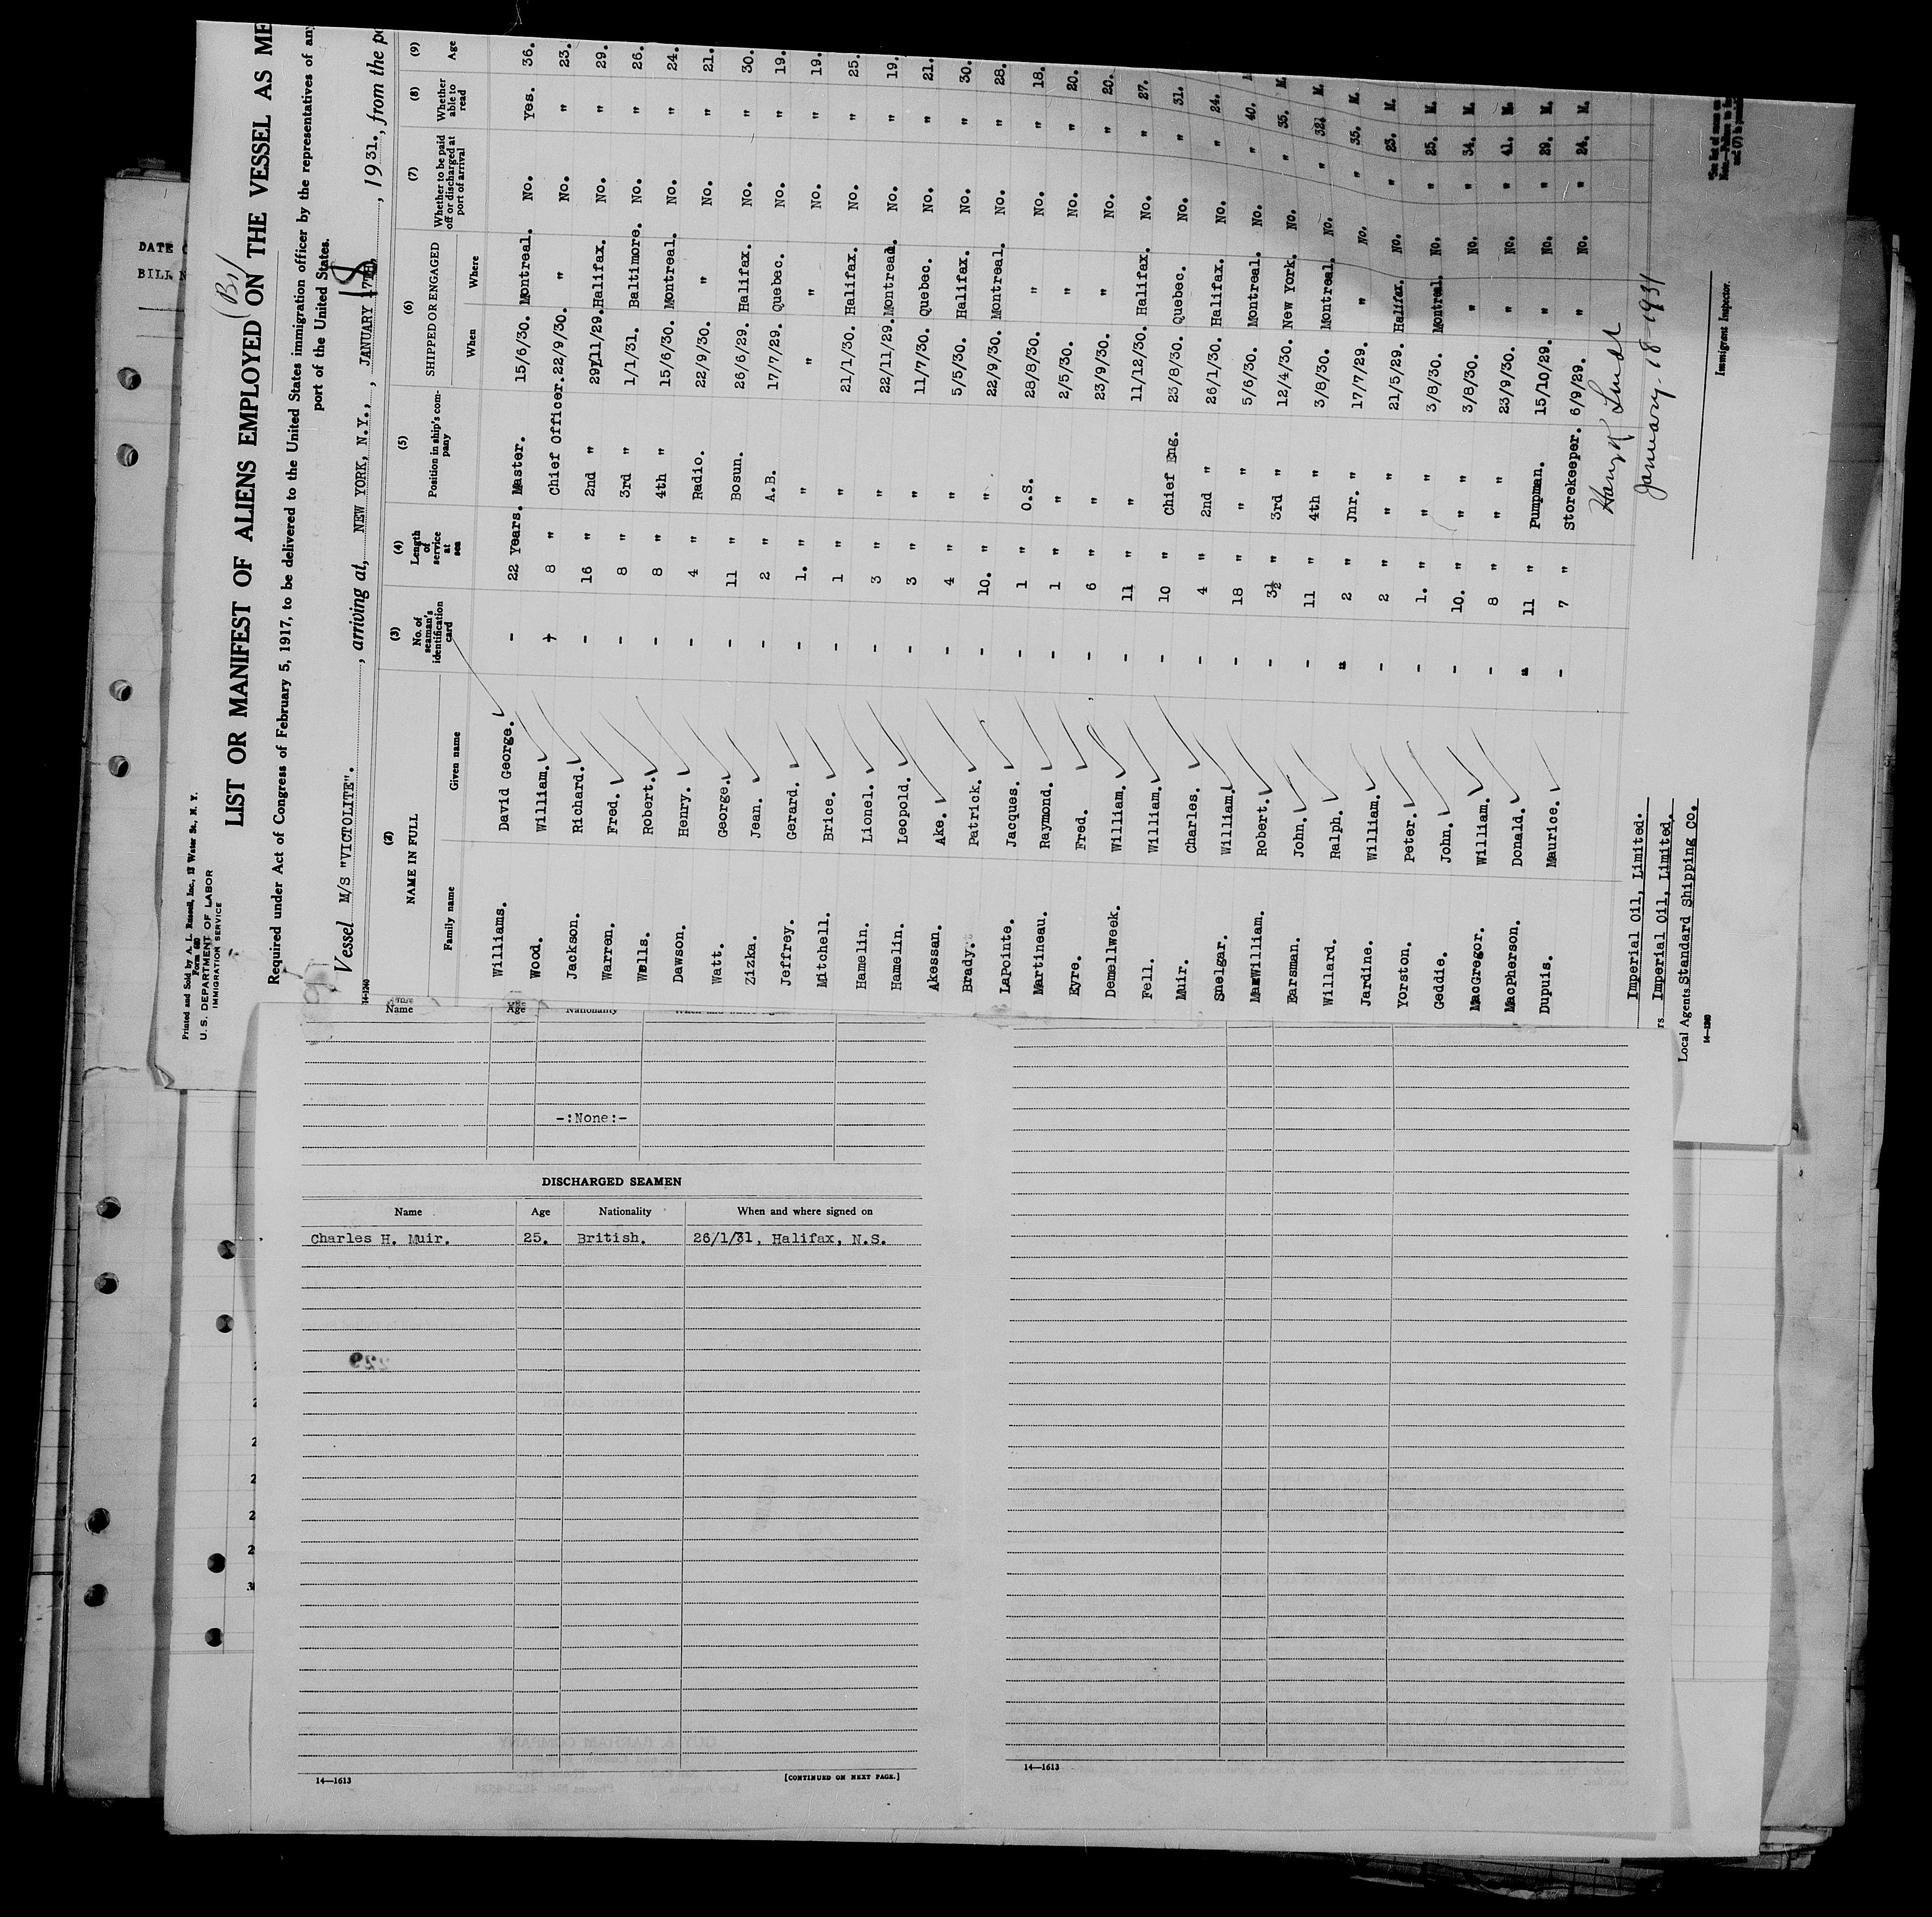 Printed and Sold by A. L. Russell, Inc., 12 Water St., N. Y.
Form 680
U. S. DEPARTMENT OF LABOR
IMMIGRATION SERVICE
(Br)
LIST OR MANIFEST OF ALIENS EMPLOYED ON THE VESSEL AS ME
Required under Act of Congress of February 5, 1917, to be delivered to the United States immigration officer by the representatives of any
port of the United States.
18
Vessel M/S "VICTOLITE"., arriving at, NEW YORK, N.Y., JANUARY 17TH, 1931., from the po
14-1240
(2) (3) (4) (5) (6) (7) (8) (9)
NAME IN FULL No. of seaman's identification card Length of service at sea Position in ship's company SHIPPED OR ENGAGED Whether to be paid off or discharged at port of arrival Whether able to read Age
Family name Given name When Where
Williams. David George. - 22 Years. Master. 15/6/30. Montreal. No. Yes. 36.
Wood. William. - 8 " Chief Officer. 22/9/30. " No. " 23.
Jackson. Richard. - 16 " 2nd " 29/11/29. Halifax. No. " 29.
Warren. Fred. - 8 " 3rd " 1/1/31. Baltimore. No. " 26.
Wells. Robert. - 8 " 4th " 15/6/30. Montreal. No. " 24.
Dawson. Henry. - 4 " Radio. 22/9/30. " No. " 21.
Watt. George. - 11 " Bosun. 26/6/29. Halifax. No. " 30.
Zizka. Jean. - 2 " A.B. 17/7/29. Quebec. No. " 19.
Jeffrey. Gerard. - 1. " " " " No. " 19.
Mitchell. Brice. - 1 " " 21/1/30. Halifax. No. " 25.
Hamelin. Lionel. - 3 " " 22/11/29. Montreal. No. " 19.
Hamelin. Leopold. - 3 " " 11/7/30. Quebec. No. " 21.
Akessan. Ake. - 4 " " 5/5/30. Halifax. No. " 30.
Brady. Patrick. - 10. " " 22/9/30. Montreal. No. " 28.
LaPointe. Jacques. - 1 " O.S. 28/8/30. " No. " 18.
Martineau. Raymond. - 1 " " 2/5/30. " No. " 20.
Eyre. Fred. - 6 " " 23/9/30. " No. " 20.
Demellweek. William. - 11 " " 11/12/30. Halifax. No. " 27.
Fell. William. - 10 " Chief Eng. 23/8/30. Quebec. No. " 31.
Muir. Charles. - 4 " 2nd " 26/1/30. Halifax. No. " 24.
Snelgar. William. - 18 " " " 5/6/30. Montreal. No. " 40.
MacWilliam. Robert. - 3½ " 3rd " 12/4/30. New York. No. " 35. M.
Earsman. John. - 11 " 4th " 3/8/30. Montreal. No. " 32. M.
Willard. Ralph. - 2 " Jnr. " 17/7/29. " No. " 35. M.
Jardine. William. - 2 " " " 21/5/29. Halifax. No. " 23. M.
Yorston. Peter. - 1. " " " 3/8/30. Montreal. No. " 25. M.
Geddie. John. - 10. " " " 3/8/30. " No. " 34. M.
MacGregor. William. - 8 " " " 23/9/30. " No. " 41. M.
MacPherson. Donald. - 11 " Pumpman. 15/10/29. " No. " 29. M.
Dupuis. Maurice. - 7 " Storekeeper. 6/9/29. " No. " 24. M.
January-18-1931
Immigrant Inspector.
Imperial Oil, Limited.
rs Imperial Oil, Limited.
Local Agents Standard Shipping Co.
14-1240
DATE
BILL
Name Age Nationality
-:None:-
DISCHARGED SEAMEN
Name Age Nationality When and where signed on
Charles H. Muir. 25. British. 26/1/31, Halifax, N.S.
229
14—1613 [CONTINUED ON NEXT PAGE.]
14—1613